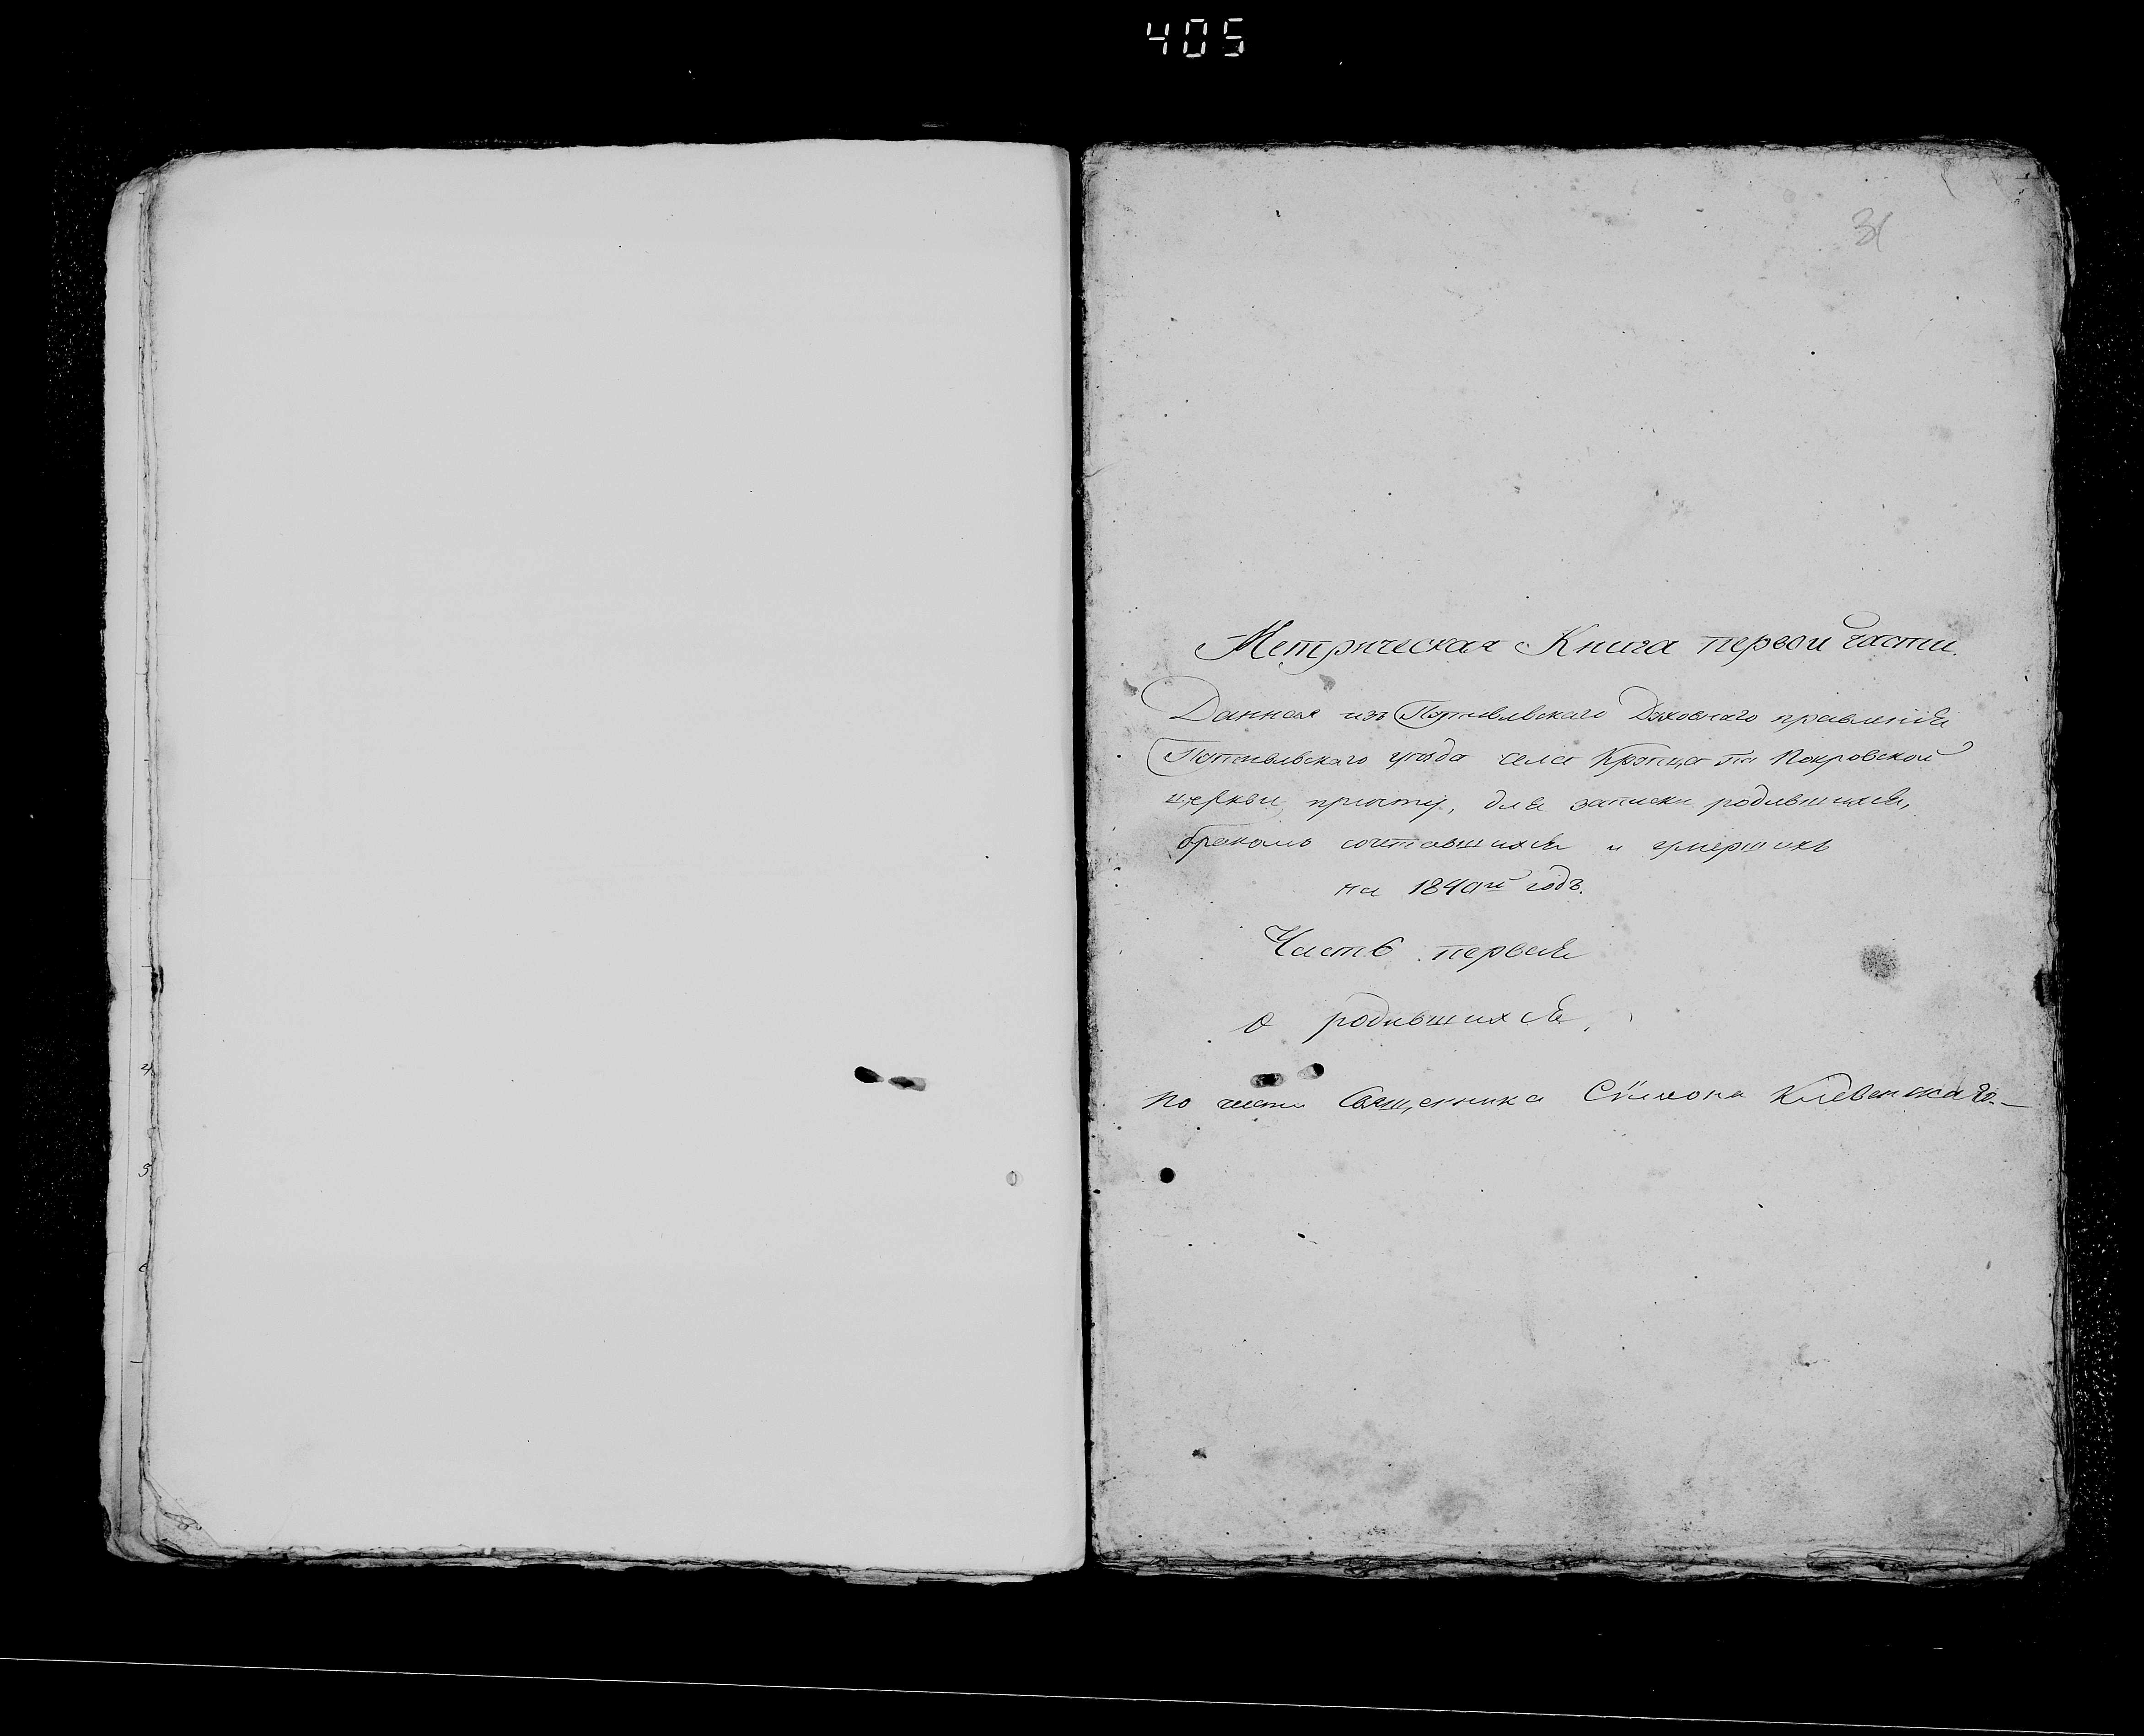 405
31
Метрическая Книга первой части.
Данная изъ Путивльскаго Духовнаго правленія
Путивльскаго уѣзда села Крупца на Покровской
церкви причту, для записки родившихся,
бракомъ сочетавшихся и умершихъ
на годъ.
Часть первая
О родившихся.
По части Священника Сѵмеона Клевенскаго.—
4
5
6